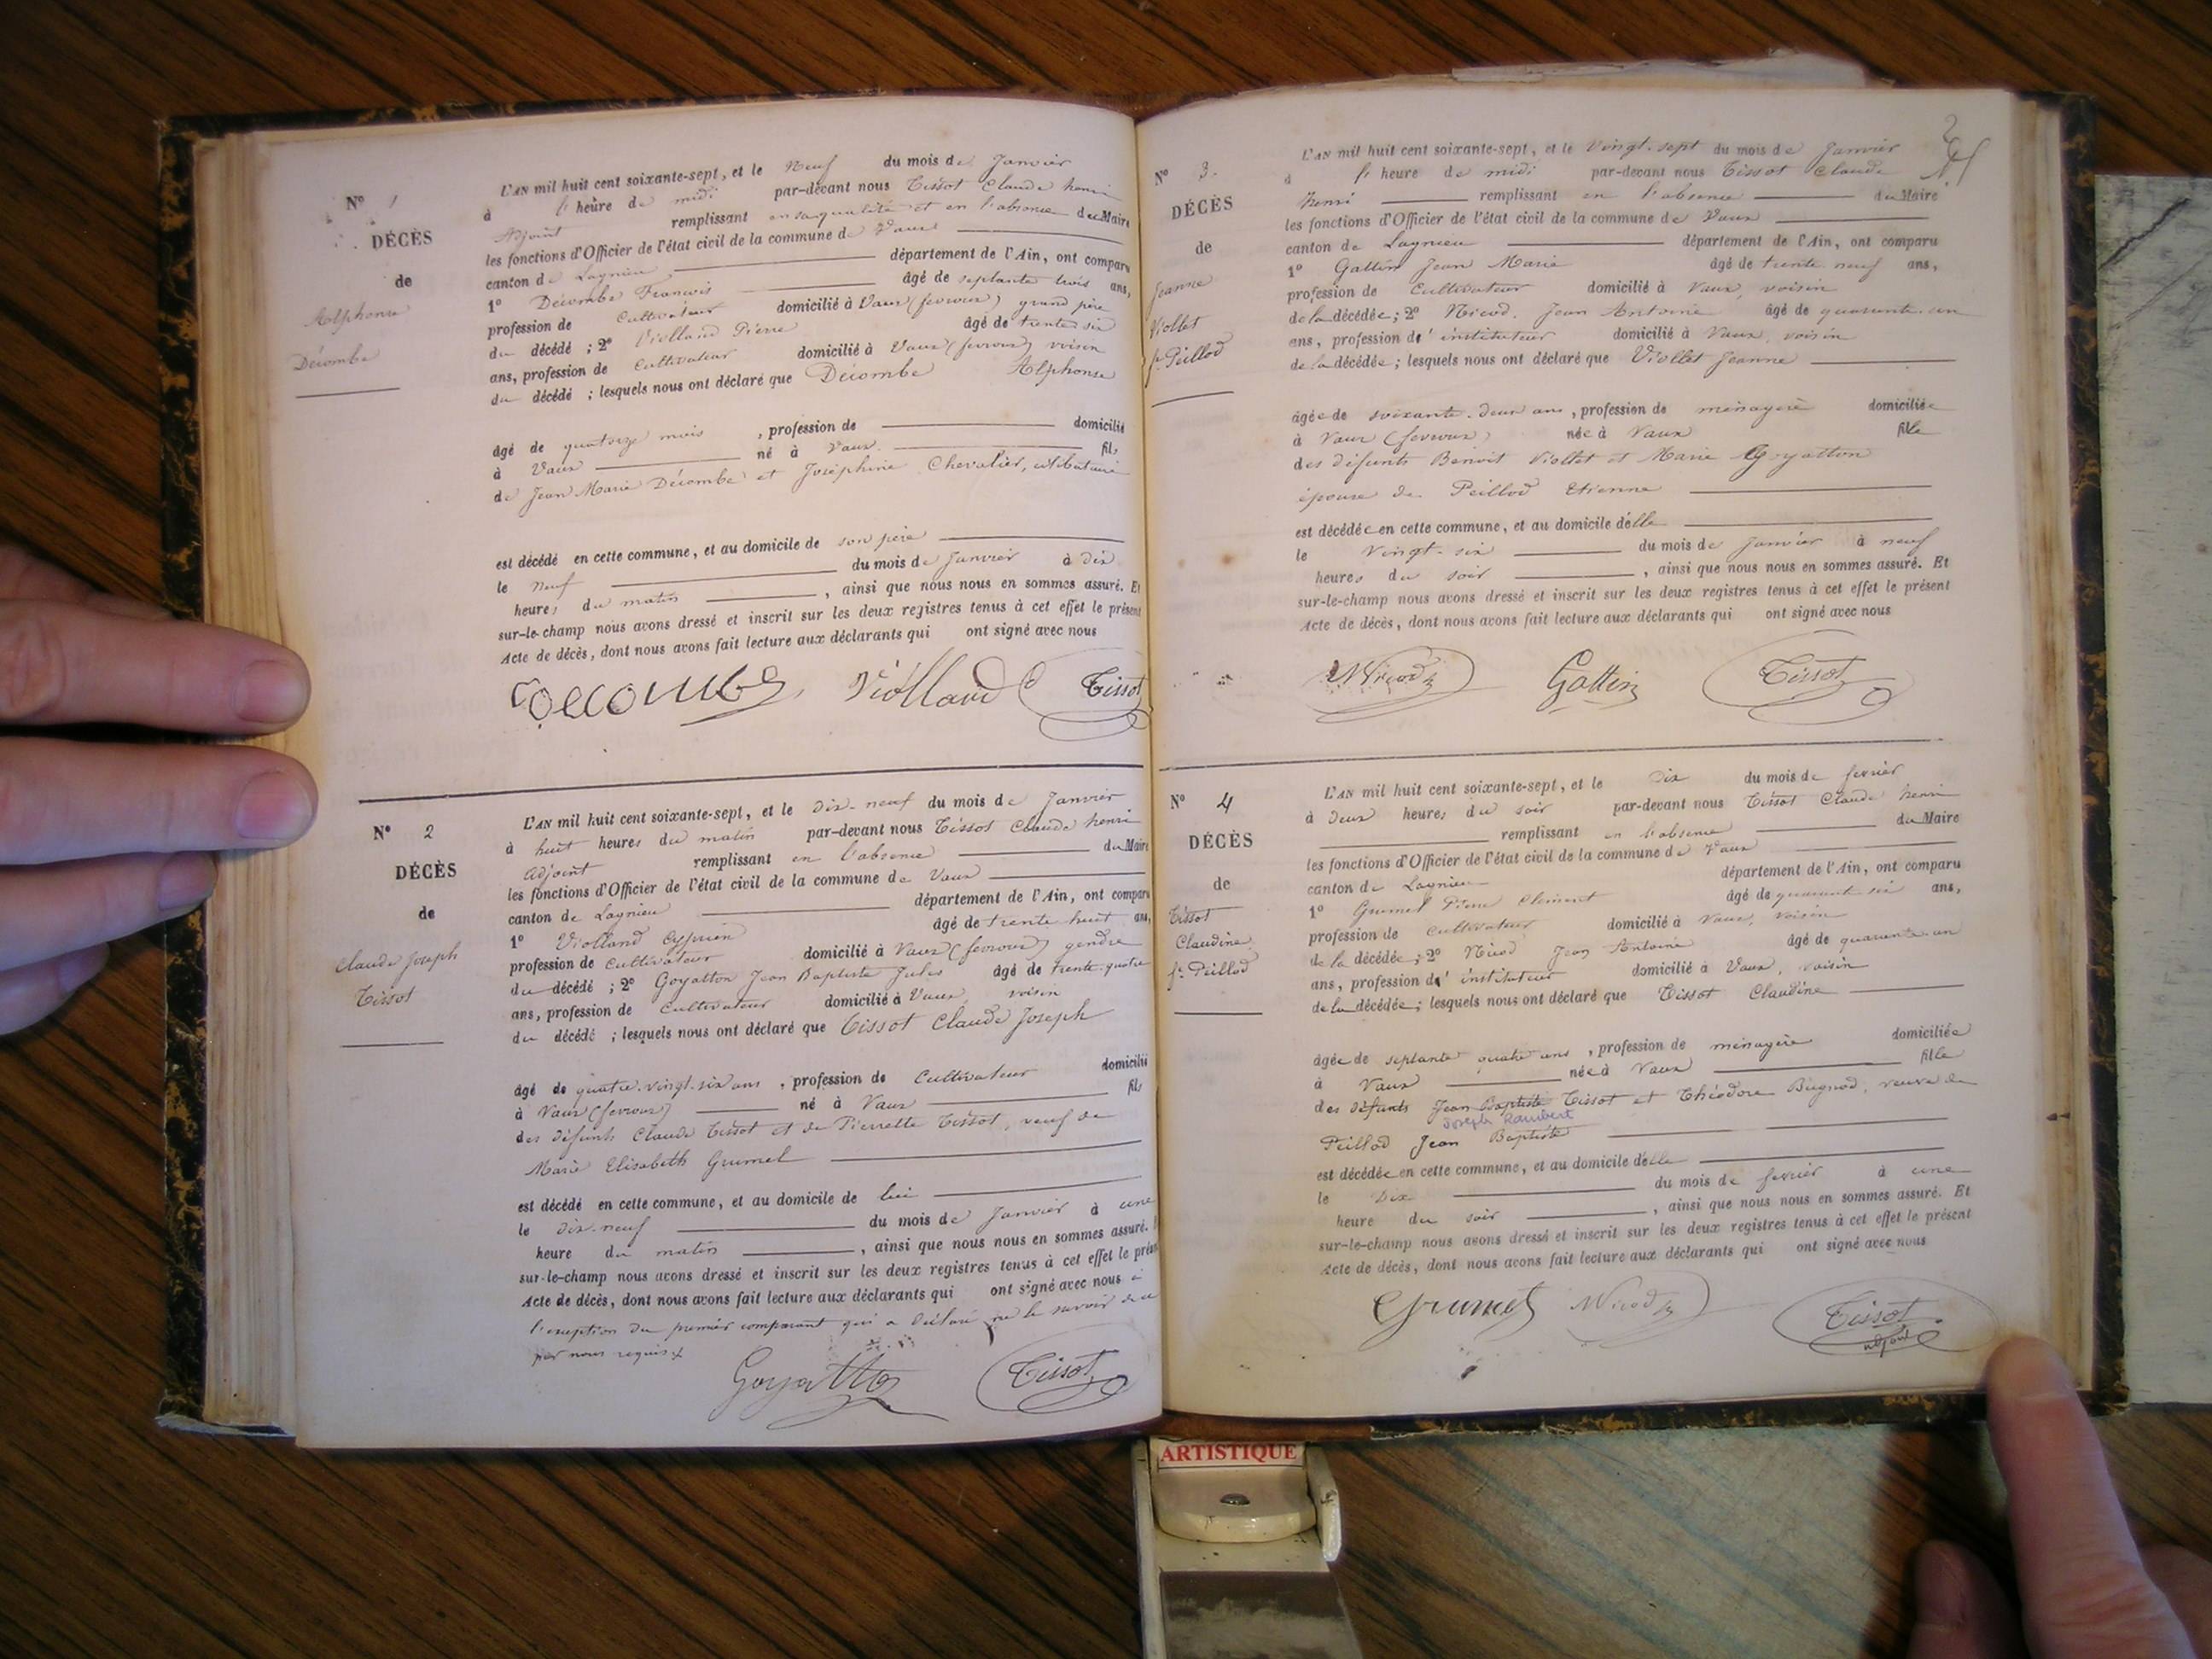 N° 1
DÉCÈS
de
Alphonse
Décombe
L'AN mil huit cent soixante-sept, et le Neuf du mois de Janvier
à l' heure de midi par-devant nous Tissot Claude henri
Adjoint remplissant en sa qualité et en l'absence du Maire
les fonctions d'Officier de l'état civil de la commune de Vaux
canton de Lagnieu département de l'Ain, ont comparu
1° Décombe Francois âgé de septante trois ans,
profession de Cultivateur domicilié à Vaux (fevroux) grand père
du décédé ; 2° Viollaud Pierre âgé de trente six
ans, profession de Cultivateur domicilié à Vaux (fevroux) voisin
du décédé ; lesquels nous ont déclaré que Décombe Alphonse
âgé de quatorze mois , profession de domicilié
à Vaux né à Vaux fils
de Jean Marie Décombe et Joséphine Chevalier, célibataire
est décédé en cette commune, et au domicile de son père
le Neuf du mois de Janvier à dix
heures du matin , ainsi que nous nous en sommes assuré. Et
sur-le-champ nous avons dressé et inscrit sur les deux registres tenus à cet effet le présent
Acte de décès, dont nous avons fait lecture aux déclarants qui ont signé avec nous
Decombe Viollaud Tissot
N° 2
DÉCÈS
de
Claude Joseph
Tissot
L'AN mil huit cent soixante-sept, et le Dix-neuf du mois de Janvier
à huit heures du matin par-devant nous Tissot Claude henri
Adjoint remplissant en l'absence du Maire
les fonctions d'Officier de l'état civil de la commune de Vaux
canton de Lagnieu département de l'Ain, ont comparu
1° Viollaud Cyprien âgé de trente huit ans,
profession de Cultivateur domicilié à Vaux (fevroux) gendre
du décédé ; 2° Goyatton Jean Baptiste Jules âgé de trente-quatre
ans, profession de Cultivateur domicilié à Vaux, voisin
du décédé ; lesquels nous ont déclaré que Tissot Claude Joseph
âgé de quatre-vingt-six ans , profession de Cultivateur domicilié
à Vaux (fevroux) né à Vaux fils
des défunts Claude Tissot et de Pierrette Tissot, veuf de
Marie Elisabeth Grumel
est décédé en cette commune, et au domicile de lui
le dix-neuf du mois de Janvier à une
heure du matin , ainsi que nous nous en sommes assuré.
sur-le-champ nous avons dressé et inscrit sur les deux registres tenus à cet effet le présent
Acte de décès, dont nous avons fait lecture aux déclarants qui ont signé avec nous à
l'exeption du premier comparant qui a déclaré ne le savoir de ce
par nous requis
Goyatton Tissot
N° 3.
DÉCÈS
de
Jeanne
Viollet
fe Peillod
L'AN mil huit cent soixante-sept, et le Vingt-sept du mois de Janvier
à l' heure de midi par-devant nous Tissot Claude
henri remplissant en l'absence du Maire
les fonctions d'Officier de l'état civil de la commune de Vaux
canton de Lagnieu département de l'Ain, ont comparu
1° Gattin Jean Marie âgé de trente neuf ans,
profession de Cultivateur domicilié à Vaux, voisin
de la décédée ; 2° Nicod. Jean Antoine âgé de quarante-un
ans, profession d' instituteur domicilié à Vaux, voisin
de la décédée ; lesquels nous ont déclaré que Viollet Jeanne
âgée de soixante-deux ans , profession de ménagère domiciliée
à Vaux (fevroux) née à Vaux fille
des défunts Benoit Viollet et Marie Goyatton
épouse de Peillod Etienne
est décédée en cette commune, et au domicile d'elle
le Vingt-six du mois de Janvier à neuf
heures du soir , ainsi que nous nous en sommes assuré. Et
sur-le-champ nous avons dressé et inscrit sur les deux registres tenus à cet effet le présent
Acte de décès, dont nous avons fait lecture aux déclarants qui ont signé avec nous
Nicod Gattin Tissot
N° 4
DÉCÈS
de
Tissot
Claudine
fe Peillod
L'AN mil huit cent soixante-sept, et le Dix du mois de fevrier
à Deux heures du soir par-devant nous Tissot Claude henri
remplissant en l'absence du Maire
les fonctions d'Officier de l'état civil de la commune de Vaux
canton de Lagnieu département de l'Ain, ont comparu
1° Grumet Pierre Clément âgé de quarante six ans,
profession de Cultivateur domicilié à Vaux, voisin
de la décédée ; 2° Nicod Jean Antoine âgé de quarante-un
ans, profession d' instituteur domicilié à Vaux, voisin
de la décédée ; lesquels nous ont déclaré que Tissot Claudine
âgée de septante quatre ans , profession de ménagère domiciliée
à Vaux née à Vaux fille
des défunts Jean Baptiste Tissot et Théodore Bugnod, veuve de
Joseph Rambert
Peillod Jean Baptiste
est décédée en cette commune, et au domicile d'elle
le Dix du mois de fevrier à une
heure du soir , ainsi que nous nous en sommes assuré. Et
sur-le-champ nous avons dressé et inscrit sur les deux registres tenus à cet effet le présent
Acte de décès, dont nous avons fait lecture aux déclarants qui ont signé avec nous
Grumet Nicod Tissot
adjoint
ARTISTIQUE